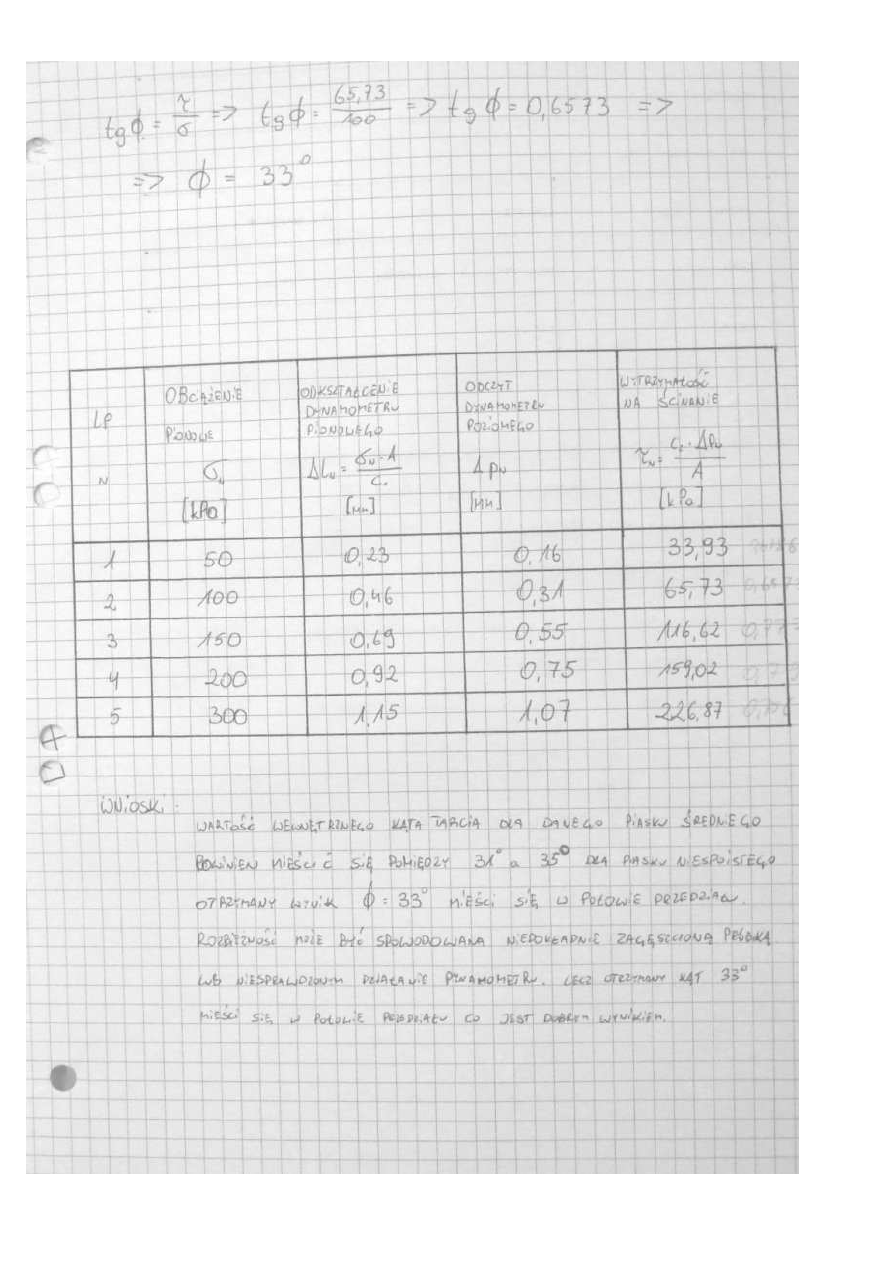 tgϕ = τ/σ => tgϕ = 65,73/100 => tgϕ = 0,6573 =>
=> ϕ = 33°
LP N | OBCIĄŻENIE PIONOWE σN [kPa] | ODKSZTAŁCENIE DYNAMOMETRU PIONOWEGO ΔLN = σN·A/C. [mm] | ODCZYT DYNAMOMETRU POZIOMEGO ΔPN [mm] | WYTRZYMAŁOŚĆ NA ŚCINANIE τN = C.·ΔPN/A [kPa]
1 | 50 | 0,23 | 0,16 | 33,93
2 | 100 | 0,46 | 0,31 | 65,73
3 | 150 | 0,69 | 0,55 | 116,62
4 | 200 | 0,92 | 0,75 | 159,02
5 | 300 | 1,15 | 1,07 | 226,87
WNIOSKI:
WARTOŚĆ WEWNĘTRZNEGO KĄTA TARCIA DLA DANEGO PIASKU ŚREDNIEGO
POWINIEN MIEŚCIĆ SIĘ POMIĘDZY 31° a 35° DLA PIASKU NIESPOISTEGO
OTRZYMANY WYNIK ϕ = 33° MIEŚCI SIĘ W POŁOWIE PRZEDZIAŁU.
ROZBIEŻNOŚĆ MOŻE BYĆ SPOWODOWANA NIEDOKŁADNIE ZAGĘSZCZONĄ PRÓBKĄ
LUB NIESPRAWDZONYM DZIAŁANIE DYNAMOMETRU. LECZ OTRZYMANY KĄT 33°
MIEŚCI SIĘ W POŁOWIE PRZEDZIAŁU CO JEST DOBRYM WYNIKIEM.